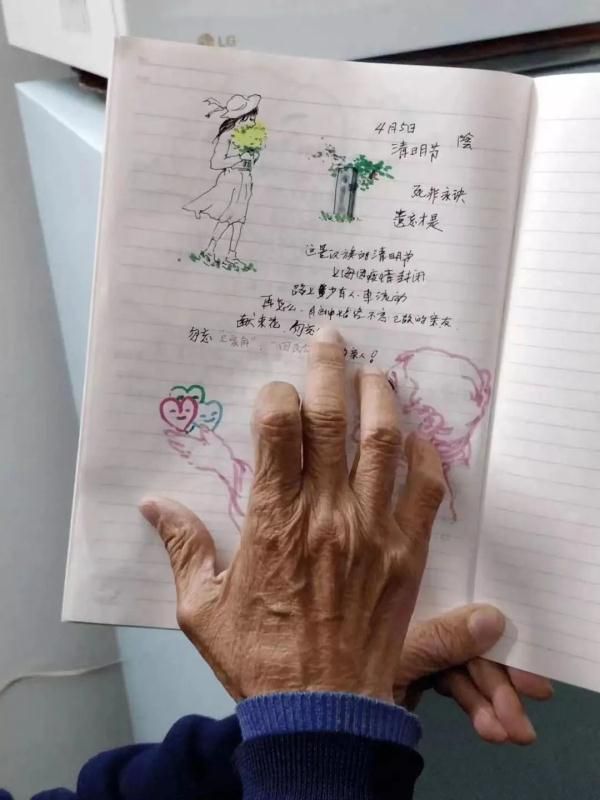 LG
4月5日 陰
清明节
死非永诀
遗忘才是
这是汉族的清明节
上海因疫情封闭
路上少有人、车流动
再怎么、不忘已故的亲友
献束花，勿忘
勿忘
亲人！